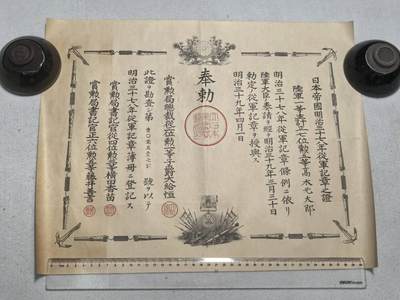 日本帝國明治三十七八年從軍記章之證
陸軍一等主計正七位勲五等高木光太郎
明治三十七八年從軍記章條例ニ依リ
陸軍大臣ノ奏請ヲ經テ明治三十九年三月三十日
勅定ノ從軍記章ヲ授與ス
明治三十九年四月一日
奉勅
賞勲局總裁從二位勲一等子爵大給恒
此證ヲ勘査シ第 號ヲ以テ
明治三十七八年從軍記章簿冊ニ登記ス
賞勲局書記官從四位勲三等横田香苗
賞勲局書記官正六位勲 等藤井善言